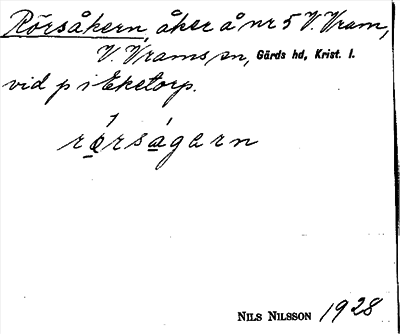 Rörsåkern, åker å nr 5 V. Vram,
V. Vrams sn, Gärds hd, Krist. l.
vid p i Eketorp.
rö́rságarn
Nils Nilsson 1928